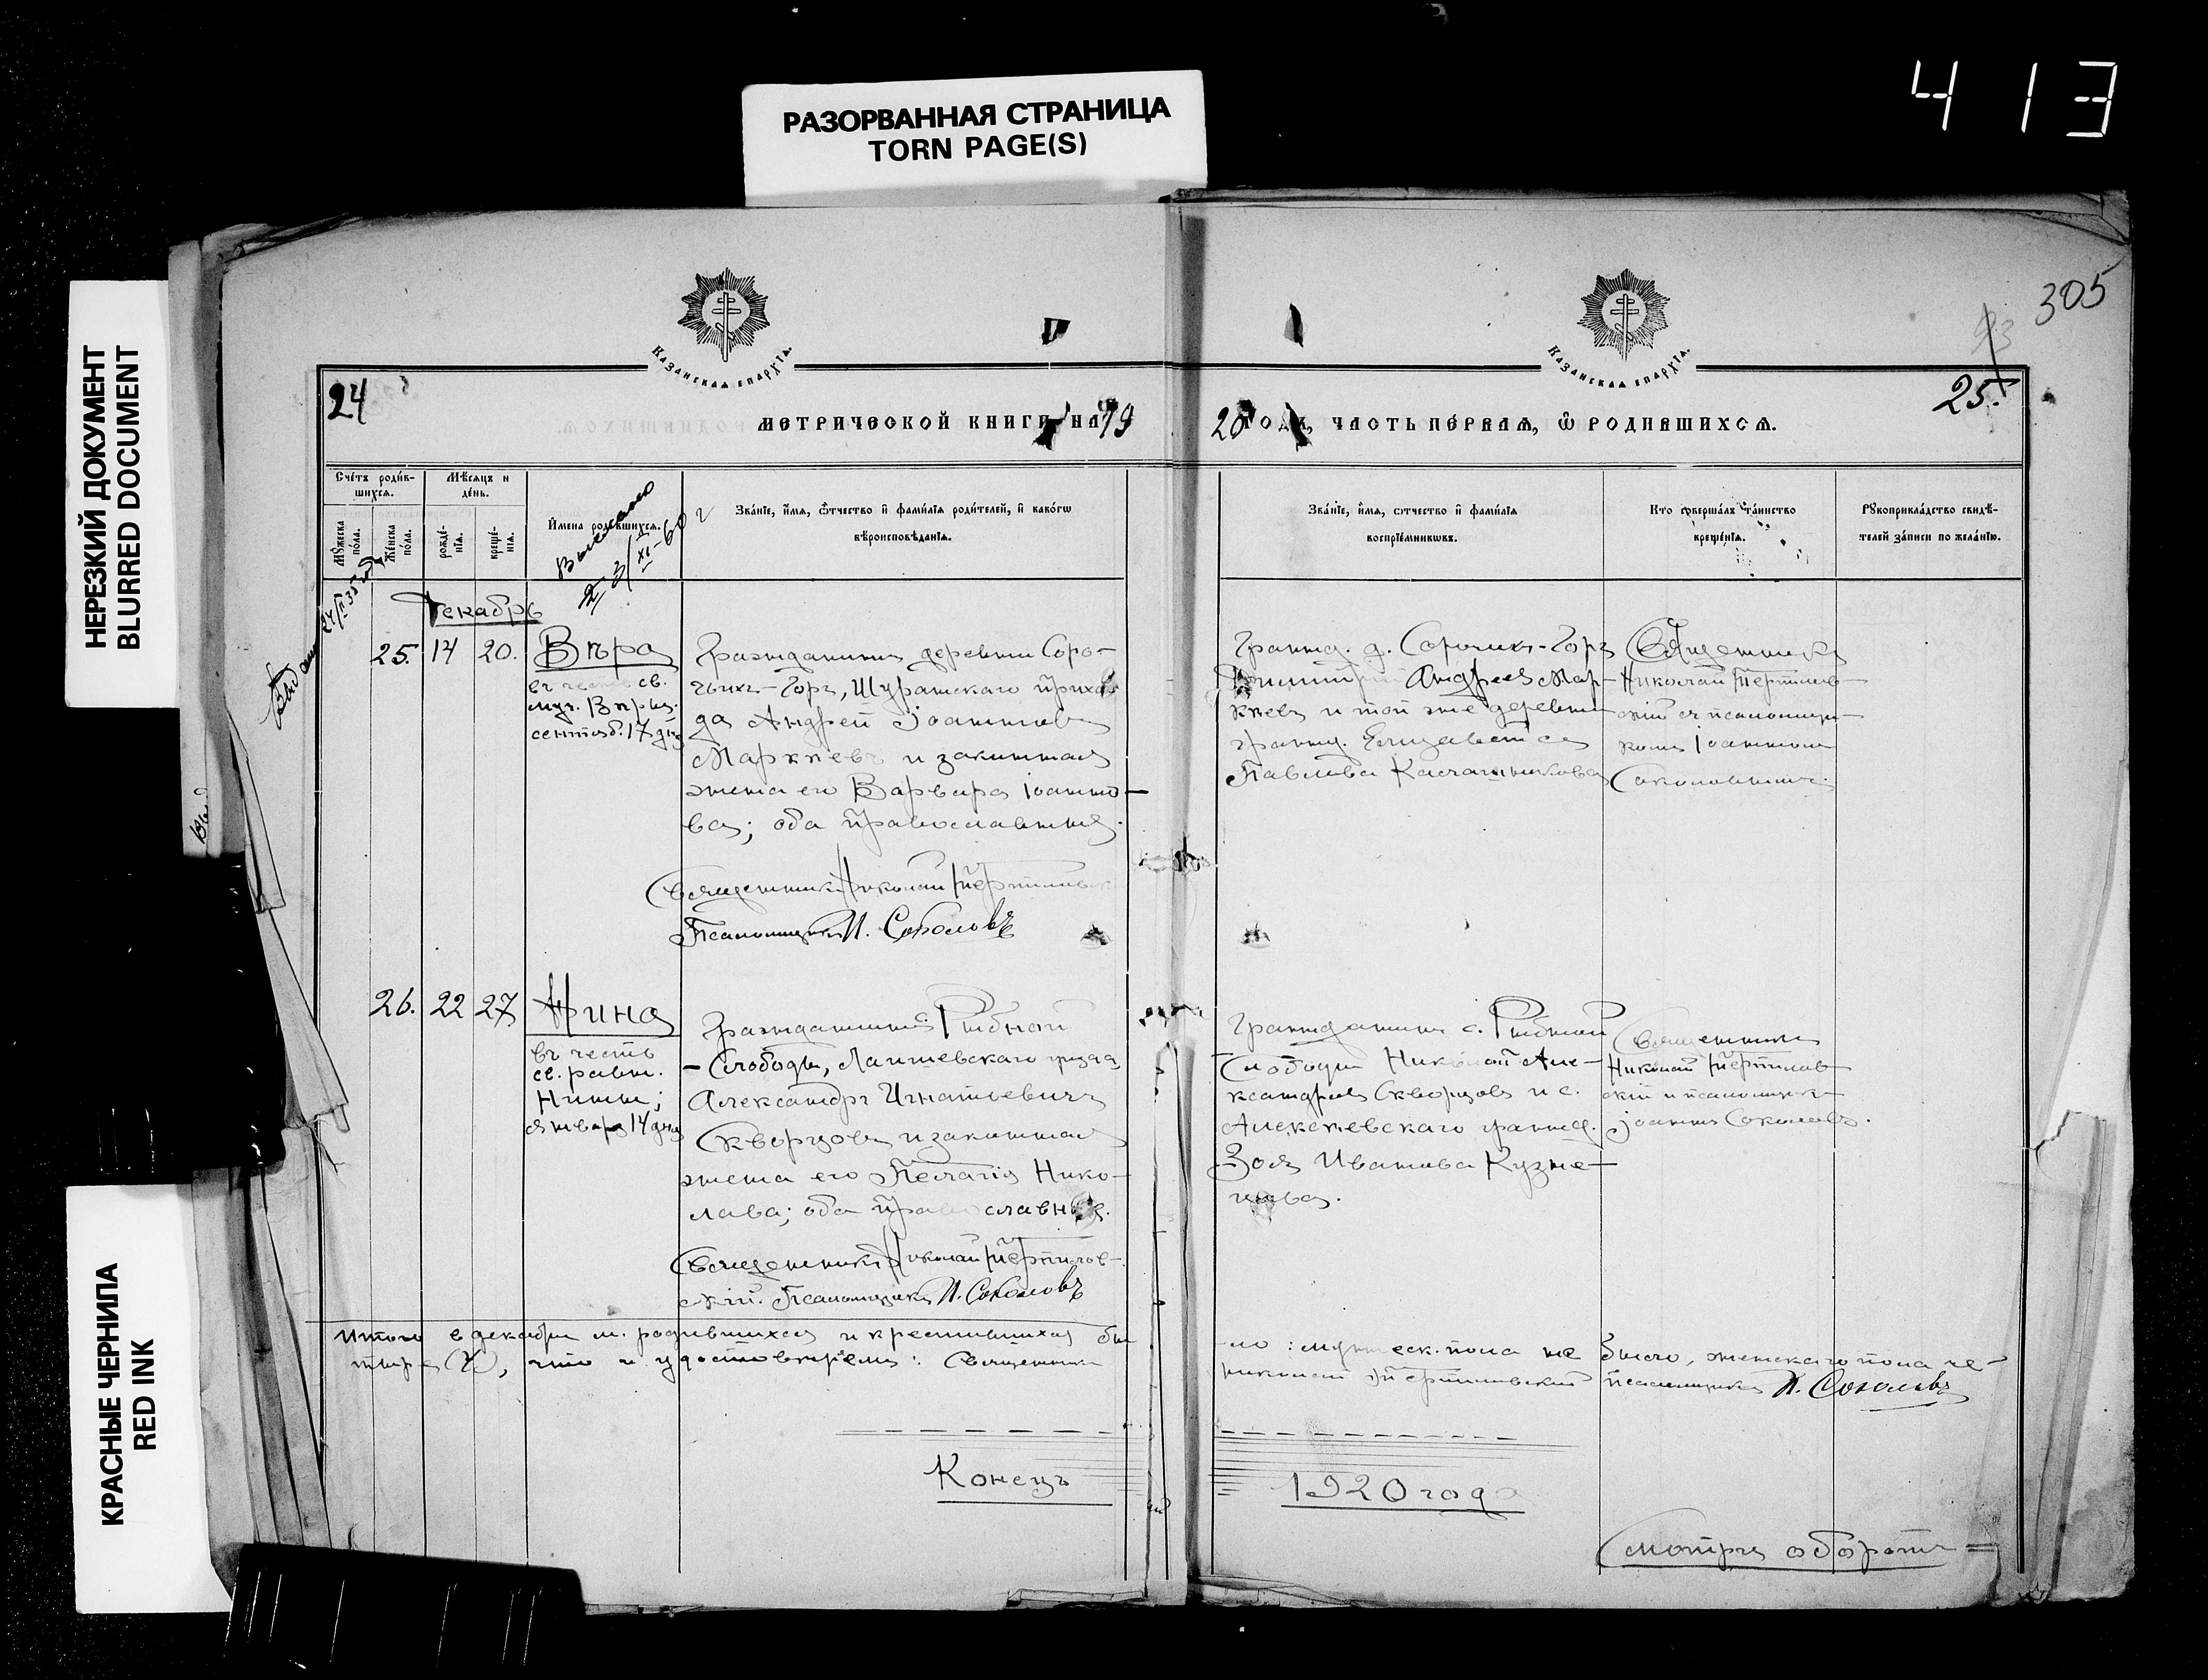 413
РАЗОРВАННАЯ СТРАНИЦА
TORN PAGE(S)
НЕРЕЗКИЙ ДОКУМЕНТ
BLURRED DOCUMENT
КРАСНЫЕ ЧЕРНИЛА
RED INK
305
93
Казанская епархїа.
Казанская епархїа.
24
25.
метрической книги на 1919
20 годъ, часть пе́рвая, ѡ родившихсѧ.
Сче́тъ роди́в-
шихсѧ.
Мѣсѧцъ и
де́нь.
Мꙋжеска
по́ла.
Же́нска
по́ла.
рожде́-
нїѧ.
креще́-
нїѧ.
И҆мена родившихсѧ.
Зва́нїе, и҆́мѧ, ѻ҆́тчество и҆ фами́лїѧ роди́телей, и҆ како́гѡ
вѣроисповѣ́данїѧ.
Зва́нїе, и҆́мѧ, ѻтчество и҆ фами́лїѧ
воспрїе́мникѡвъ.
Кто соверша́лъ та́инство
креще́нїѧ.
Рꙋкоприкла́дство свидѣ́-
телей за́писи по жела́нїю.
Выслано
2-3/XI-60 г
Выдана 24/II 35 года
Декабрь
25. 14 20. Вѣра
въ честь св.
муч. Вѣры.
сентяб. 17 дня
Гражданинъ деревни Соро-
чьихъ-Горъ, Шуранскаго прихо-
да Андрей Іоанновъ
Маркѣевъ и законная
жена его Варвара Іоанно-
ва; оба православные.
Священникъ Николай
Псаломщикъ И. Соколовъ
Гражд. д. Сорочихъ-Горъ
Димитрій Андреевъ Мар-
кѣевъ и той же деревни
гражд. Елизавета
Павлова Калашникова
Священникъ
Николай
скій съ псаломщи-
комъ Іоанномъ
Соколовымъ.
26. 22 27 Нина
въ честь
св. равн.
Нины;
января 14 дня
Гражданинъ с. Рыбной
-Слободы, Лаишевскаго уѣзда
Александръ Игнатьевичъ
Скворцовъ и законная
жена его Пелагія Нико-
лаева; оба православные.
Священникъ Николай
скій. Псаломщикъ И. Соколовъ
Гражданинъ с. Рыбной
Слободы Николай Але-
ксандровъ Скворцовъ и с.
Алексѣевскаго гражд.
Зоя Иванова Кузне-
цова.
Священникъ
Николай
скій и псаломщикъ
Іоаннъ Соколовъ.
Итого в декабрѣ м. родившихся и крестившихся бы
-ло: мужеск. пола не было, женскаго пола че-
тыре (4), что и удостовѣряемъ: Священникъ
Николай псаломщикъ И. Соколовъ
Конецъ
1920 года
Смотри оборотъ =